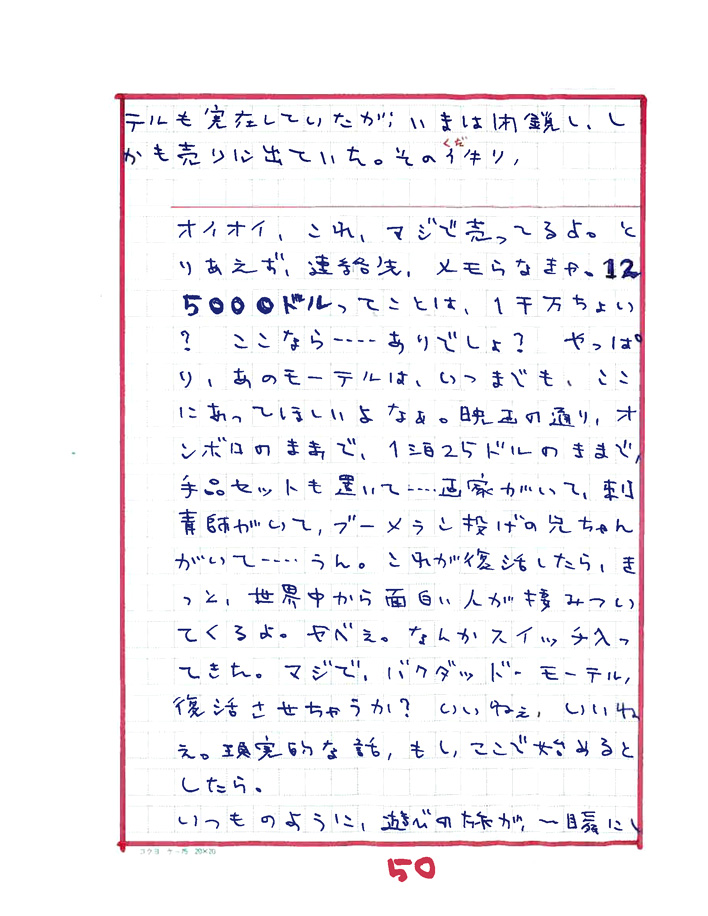 テルも実在していたが、いまは閉鎖し、し
かも売りに出ていた。その件り、
くだ
オイオイ、これ、マジで売ってるよ。と
りあえず、連絡先、メモらなきゃ。12
5000ドルってことは、1千万ちょい
？ ここなら‥‥ありでしょ？ やっぱ
り、あのモーテルは、いつまでも、ここ
にあってほしいよなぁ。映画の通り、オ
ンボロのままで、1泊25ドルのままで、
手品セットも置いて‥‥画家がいて、刺
青師がいて、ブーメラン投げの兄ちゃん
がいて‥‥うん。これが復活したら、き
っと、世界中から面白い人が棲みつい
てくるよ。ヤベぇ。なんかスイッチ入っ
てきた。マジで、バクダッド・モーテル、
復活させちゃうか？ いいねぇ、いいね
ぇ。現実的な話、もし、ここで始めると
したら。
いつものように、遊びの旅が、一瞬にし
コクヨ ケー75 20×20
50